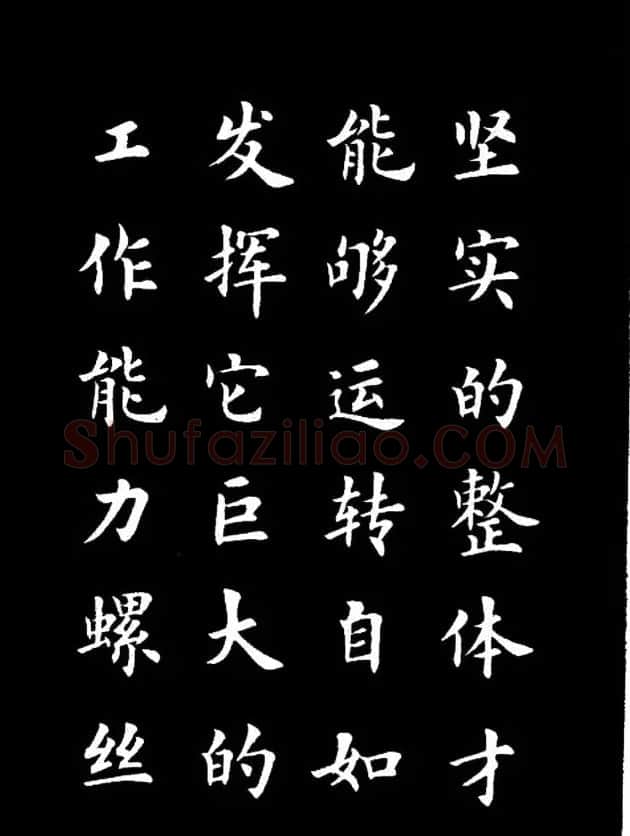 坚实的整体才
能够运转自如
发挥它巨大的
工作能力螺丝
Shufaziliao.COM